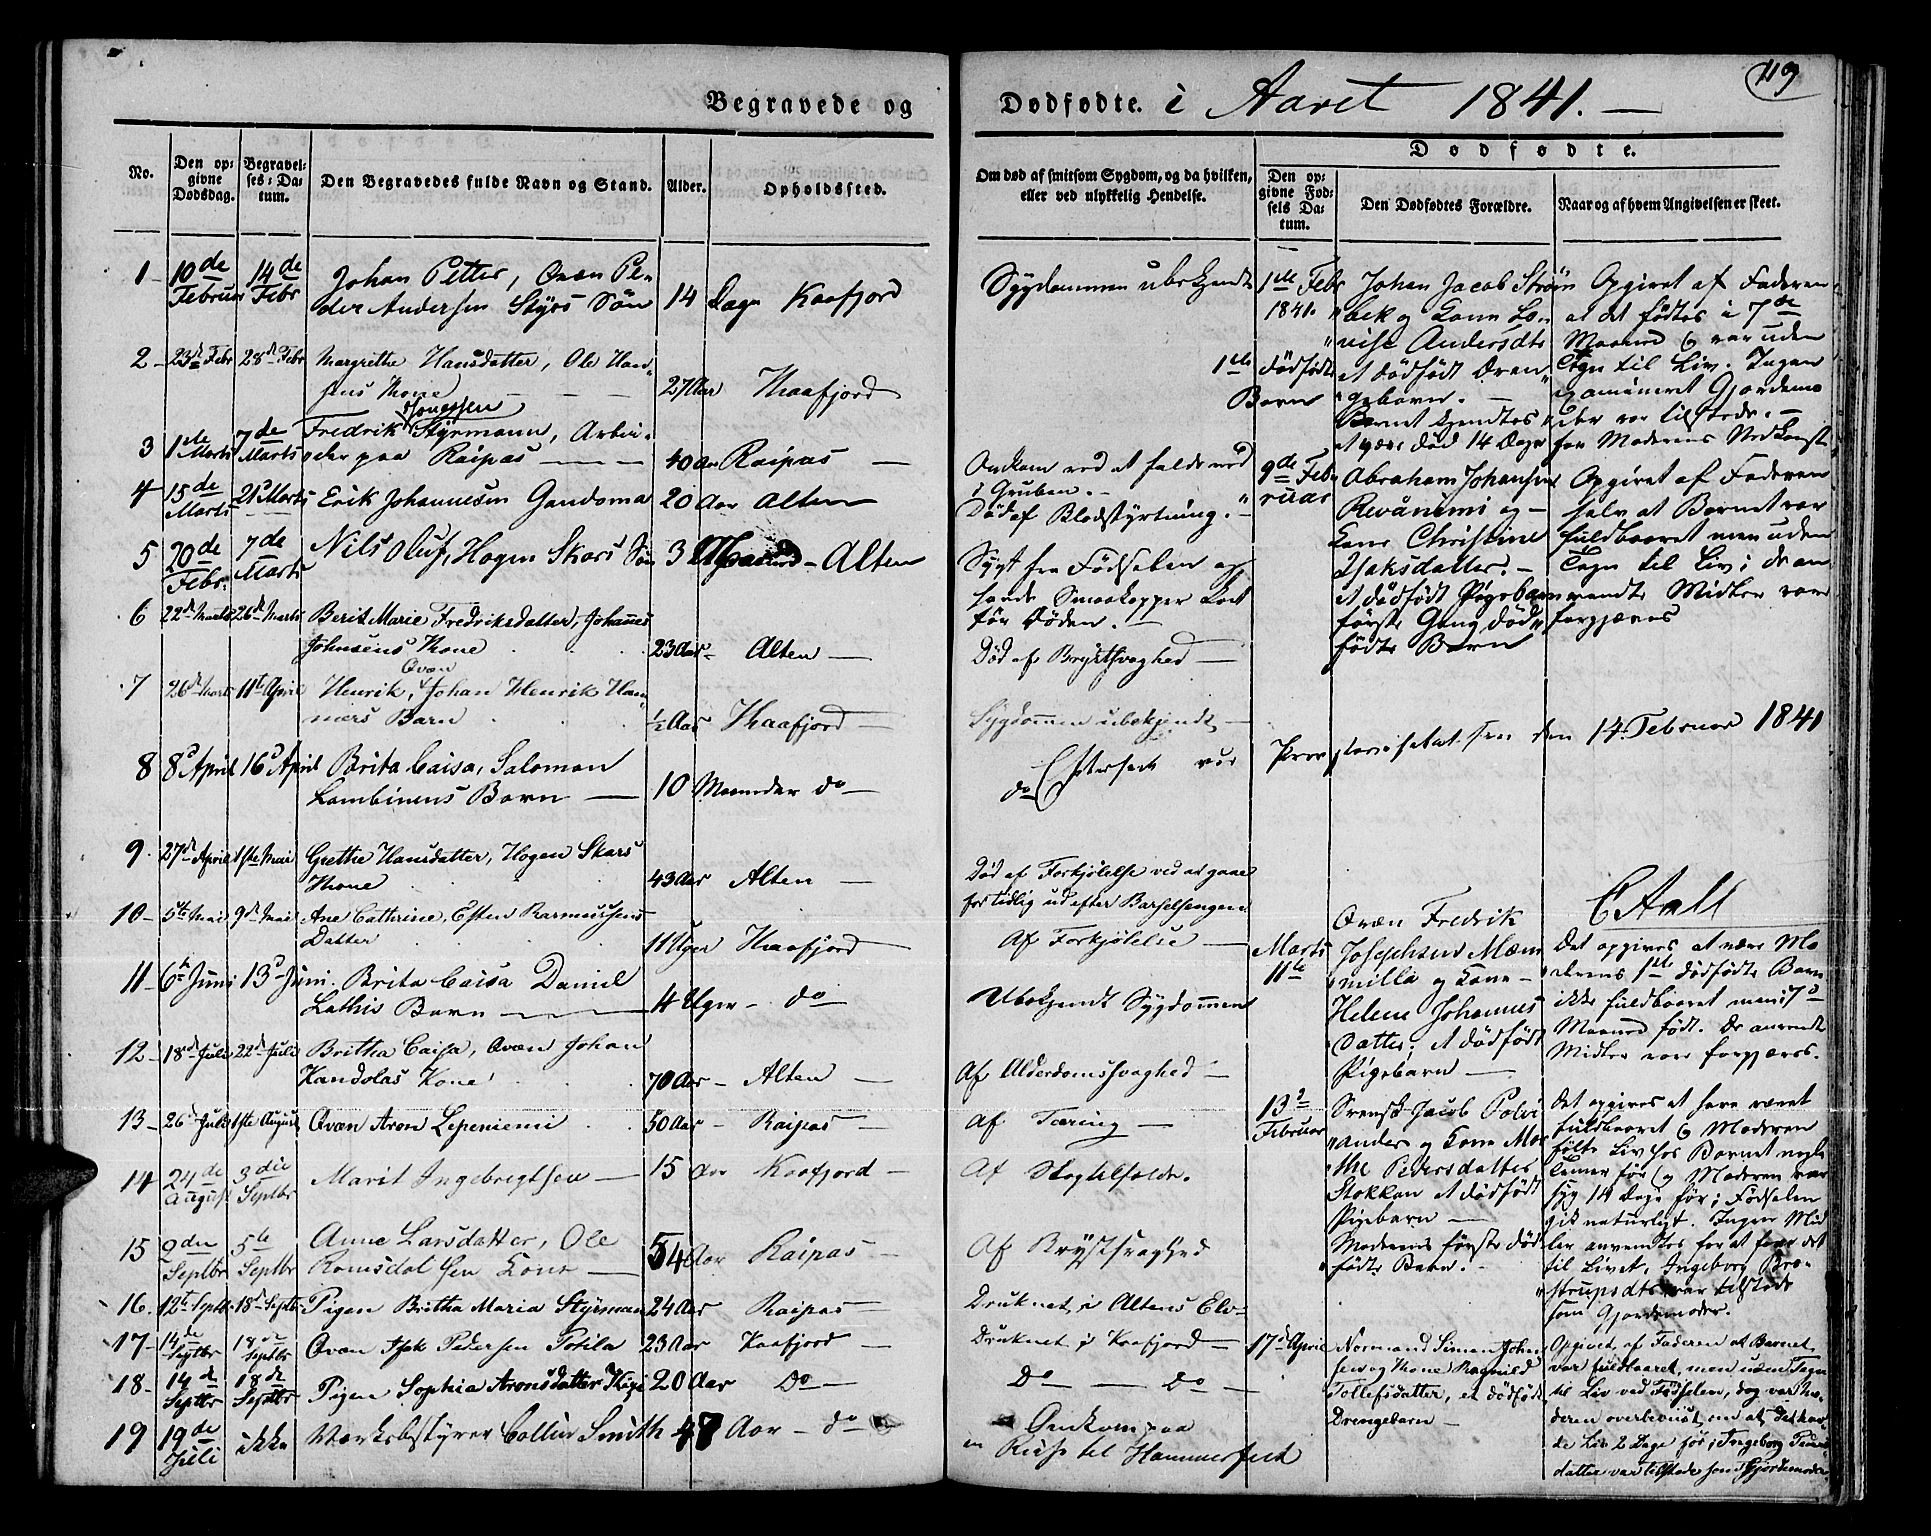 119
Begravede og Dødfødte. i Aaret 1841.
No.
Den opgivne Dødsdag.
Begravelses-Datum.
Den Begravedes fulde Navn og Stand.
Alder.
Opholdssted.
Om død af smitsom Sygdom, og da hvilken,
eller ved ulykkelig Hendelse.
Dødfødte.
Den opgivne Fødsels Datum.
Den Dødfødtes Forældre.
Naar og af hvem Angivelsen er skeet.
1 - 10de Februar 14de Febr Johan Petter, Qvæn Peder Andersen Styrs Søn 14 Dage Kaafjord Sygdommen ubekjendt
2 - 23de Febr 28de Febr Margrethe Hansdatter, Ole Hansens Kone 27 Aar Kaafjord
3 1ste Marts 7de Marts Fredrik Styrmann, Arbeider paa Raipas 40 Aar Raipas Omkom ved at falde ned i Gruben.
4 15de Marts 21de Marts Erik Johannesen Gandoma 20 Aar Alten Død af Blodstyrtning.
5 20de Febr. 7de Marts Nils Oluf, Hogen Skars Søn 3 Maaned - Alten Sygt fra Fødselen og havde Smaakopper kort før Døden.
6 22de Marts 26de Marts Berit Marie Fredriksdatter, Johannes Johnsens Kone 23 Aar - Alten Død af Brystsvaghed
7 26de Marts 11te April Henrik, Qvæn Johan Henrik Hammers Barn 1/2 Aar Kaafjord Sygdommen ubekjendt
8 8de April 16de April Brita Caisa, Salomon Lombinens Barn 10 Maaneder do do
9. 27de April 1ste Mai Grethe Hansdatter, Hogen Skars Kone 43 Aar Alten Død af Forkjølelse ved at gaae for tidlig ud efter Barselsengen
10 - 5te Mai 9de Mai Ane Cathrine, Esten Rasmussens Datter 11 Uger Kaafjord Af Forkjølelse
11 - 6te Juni 13de Juni. Brita Caisa Daniel Lathis Barn 4 Uger - do Ubekjendt Sygdommen
12 - 18de Juli 22de Juli Britha Caisa, Qvæn Johan Kandolas Kone 70 Aar - Alten Af Alderdomssvaghed
13 - 26de Juli 1ste August Qvæn Aron Lepeniemi 50 Aar - Raipas Af Tæring
14 24de August 3die Septbr Marit Ingebregtsen 15 Aar Kaafjord Af
15 2den Septbr 5te Septbr Anne Larsdatter, Ole Romsdalsen Kone 54 Aar Raipas Af Brystsvaghed
16. 12te Septb 18de Septb Pigen Britha Maria Styrman 24 Aar Raipas Druknet i Altens Elv
17 - 14de Septbr 18de Septbr Qvæn Isak Pedersen Poila 23 Aar Kaafjord Druknet i Kaafjord
18 - 14de Septbr 18de Septbr Pigen Sophia Aronsdatter 20 Aar Do Do Do
19 19de Juli ikke Værksbestyrer Collin Smith 47 Aar - do Omkom paa en Reise til Hammerfest
1ste Febr 1841. 1ste dødfødte Barn
Johan Jacob Strömbek og Kone Lovise Andersdt
et dødfødt Drengebarn.
Barnet kjendtes at være død 14 Dage før Moderens Nedkomst
Opgivet af Faderen
at det fødtes i 7de
Maaned og var uden
Tegn til Liv. Ingen
examineret Gjordemoder var tilstede.
9de Februar
Abraham Johansen
Revåniemi og
Kone Christine
Isaksdatter.
et dødfødt Pigebarn
første Gang dødfødte Barn
Opgivet af Faderen
selv at Barnet var
fuldbaaret men uden
Tegn til Liv; de anvendte Midler vare
forgjæves
Efterseet ved Provstevisitatsen den 14 Februar 1841
C Aall
Marts 11te
Qvæn Fredrik
Josephsen
og Kone
Helene Johannes
Datter, et dødfødt
Pigebarn
Det opgives at være Moderens 1ste dødfødte Barn
ikke fuldbaaret men i 7de
Maaned født. De anvendte
Midler vare forgjæves.
13de Februar
Svensk Jacob
og Kone Marthe Pedersdatter
Stokken et dødfødt
Pigebarn
Moderens første dødfødte Barn.
Det opgives at have været
fuldbaaret og Moderen
følte Liv hos Barnet
før og Moderen var
syg 14 Dage før; Fødselen
gik naturligt. Ingen Midler anvendtes for at faae det
til Livet. Ingeborg
var tilstede
som Gjordemoder.
17de April
Normand Simon Johnsen og Kone Ragnild
Tollefsdatter, et dødfødt
Drengebarn
Opgivet af Faderen at Barnet
var fuldbaaret, men uden Tegn
til Liv ved Fødselen, dog var Moderen overbeviist om at det havde Liv 2 Dage før; Ingeborg
datter var tilstede som Gjordemoder